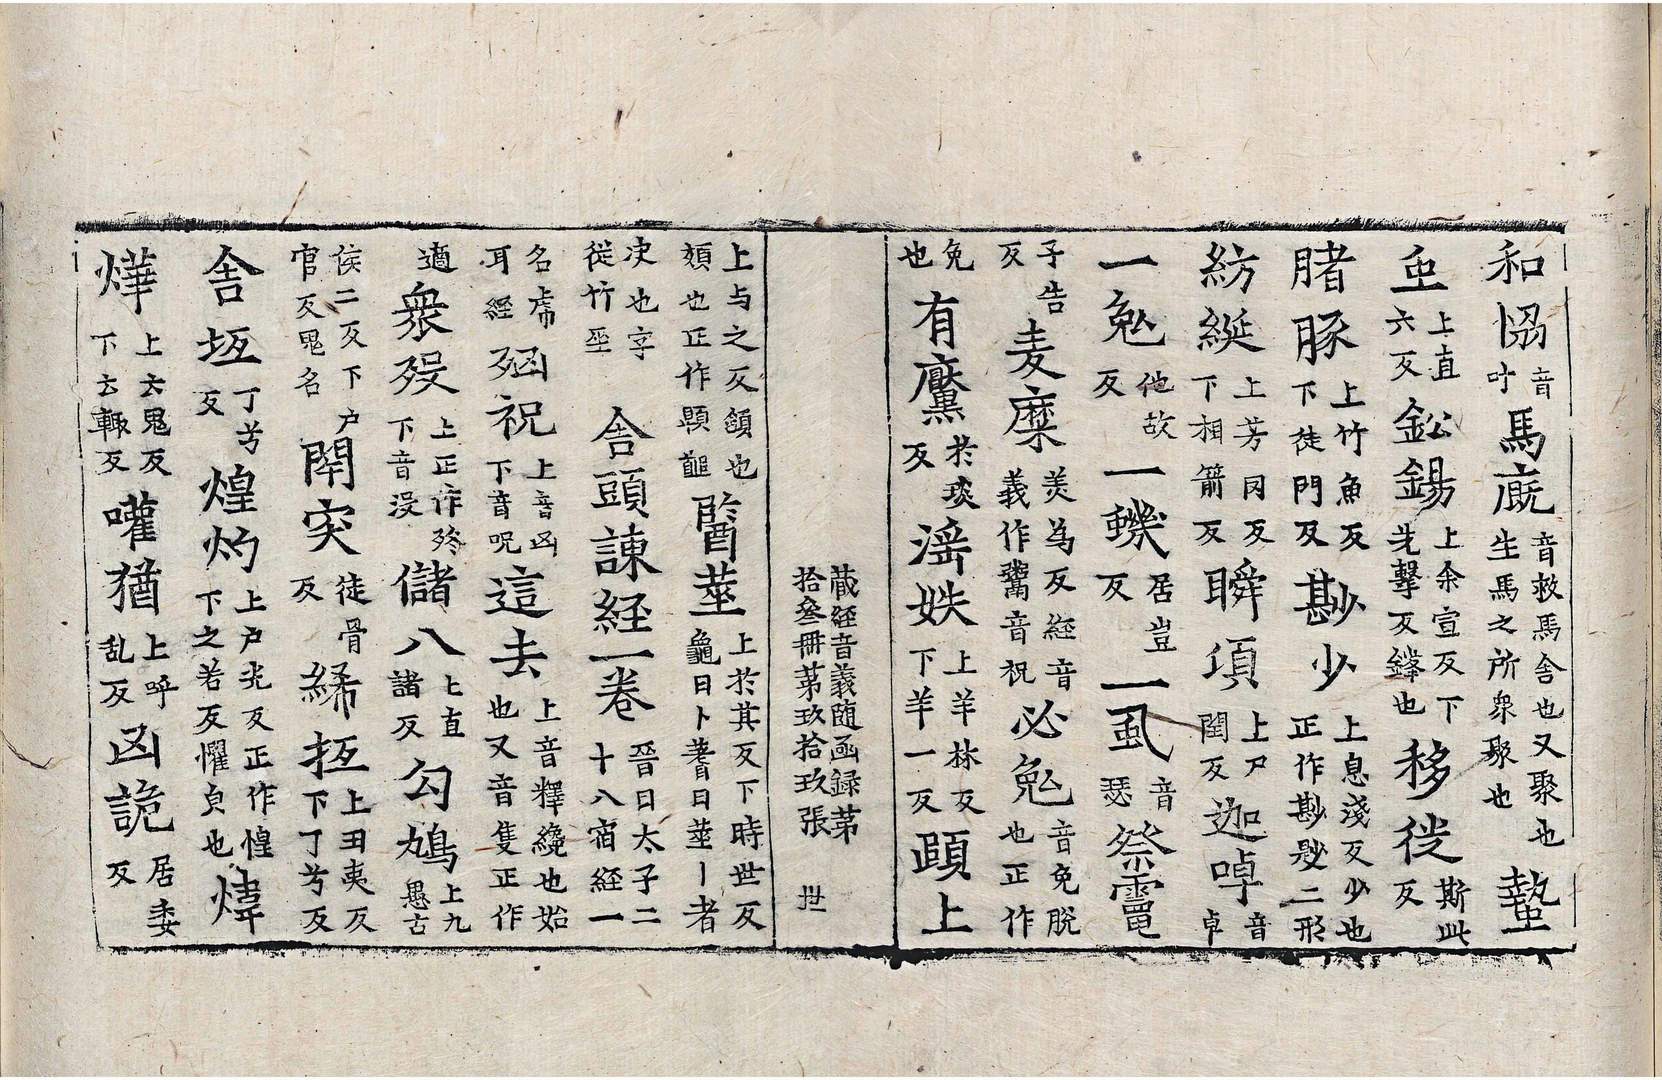 和恊音叶馬廐音救馬舍也又聚也生馬之所衆聚也蟄
䖝上直六反鈆錫上余宣反下先擊反鑞也移徙斯此反
䐗豚上竹魚反下徒門反尠少上息淺反少也正作尟尠二形
紡綖上芳罔反下相箭反瞬項上尸閏反迦啅音卓
一兔他故反一蟣居豈反一虱音瑟祭靈
子告反麦糜美為反経音義作䵃音祝必兔音免脱也正作
免也有黶於琰反滛妷上羊林反下羊一反䫌上
藏経音義随函録第拾叄冊第玖拾玖張 世
上与之反頷也頬也正作頤䪞䀲莖上於其反下時世反龜曰卜蓍曰莖丨者
决也字從竹巫 舎頭諫経一卷晉曰太子二十八宿経一
名虎耳経 㐫祝上音凶下音呪這去上音釋纔也始也又音隻正作
適衆歿上正作終下音没儲八上直諸反勾鳩上九愚古
侯二反下户官反鬼名閈突徒骨反絺㧥上丑夷反下丁兮反
舎坘丁兮反煌灼上户光反正作惶下之若反懼皃也煒
燁上云鬼反下云輒反嚾猶上呼乱反凶詭居委反